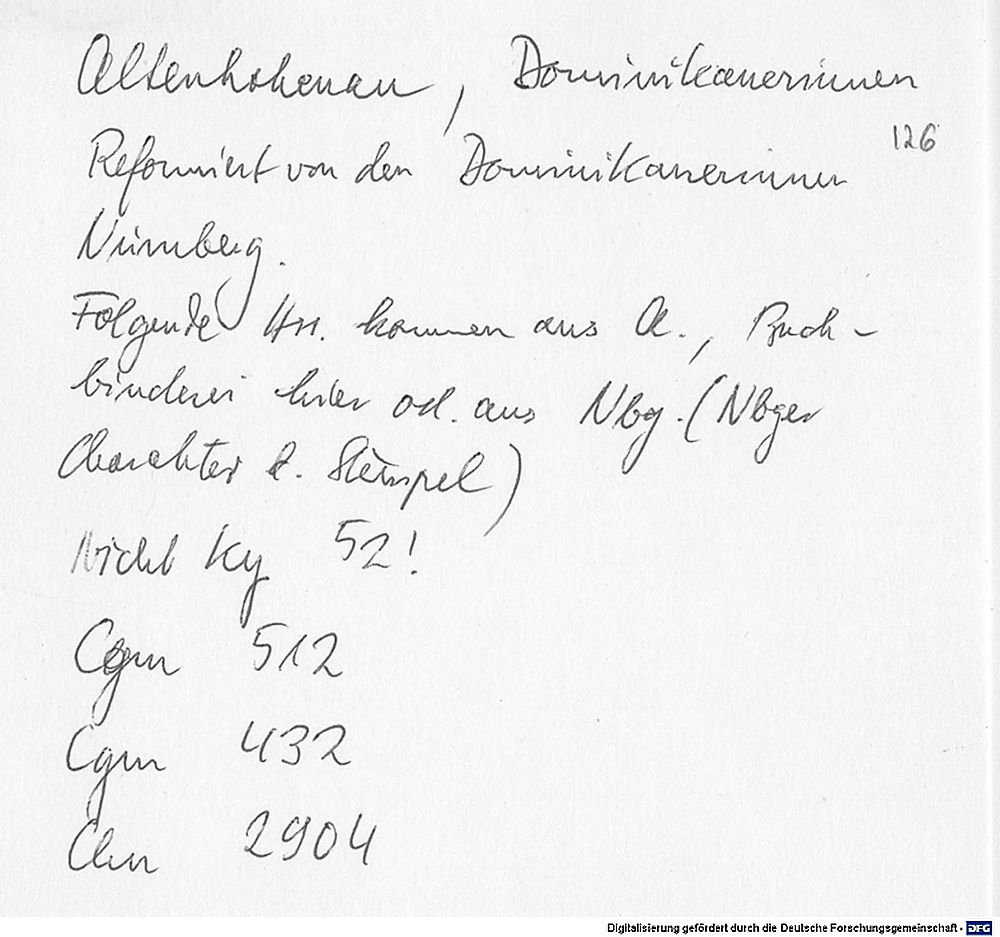 Altenhohenau, Dominikanerinnen
126
Reformiert von den Dominikanerinnen
Nürnberg.
Folgende Hss. kommen aus A., Buch-
binderei hier od. aus Nbg. (Nbger
Charakter d. Stempel)
Nicht Ky 52!
Cgm 512
Cgm 432
Clm 2904
Digitalisierung gefördert durch die Deutsche Forschungsgemeinschaft - DFG